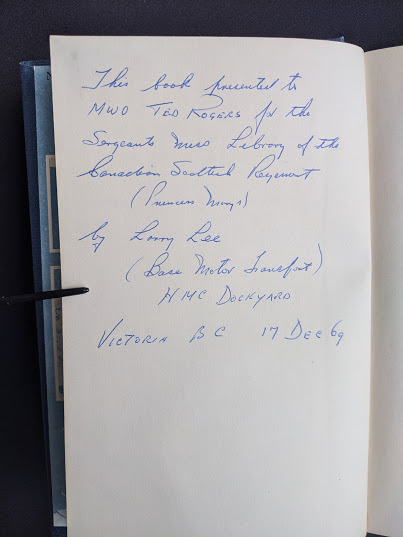 This book presented to
MWO TED ROGERS for the
Sergeants Mess Library of the
Canadian Scottish Regiment
(Princess Mary's)
by Larry Lee
(Base Motor Transport)
HMC DOCKYARD
VICTORIA BC 17 DEC 69